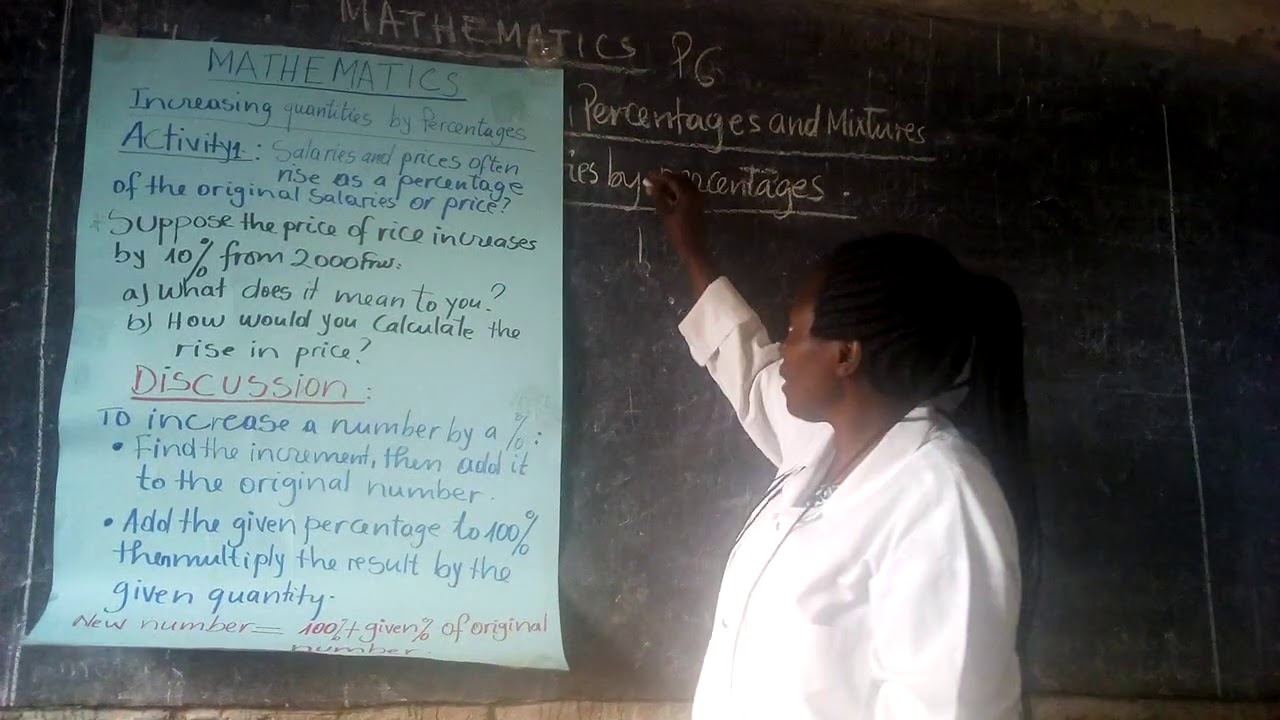 MATHEMATICS P6
Percentages and Mixtures
ies by percentages.
MATHEMATICS
Increasing quantities by Percentages
Activity1: Salaries and prices often
rise as a percentage
of the original salaries or price?
Suppose the price of rice increases
by 10% from 2000Frw.
a) What does it mean to you?
b) How would you Calculate the
rise in price?
DISCUSSION:
To increase a number by a %:
• Find the increment, then add it
to the original number.
• Add the given percentage to 100%
then multiply the result by the
given quantity.
New number = 100% + given% of original
number.